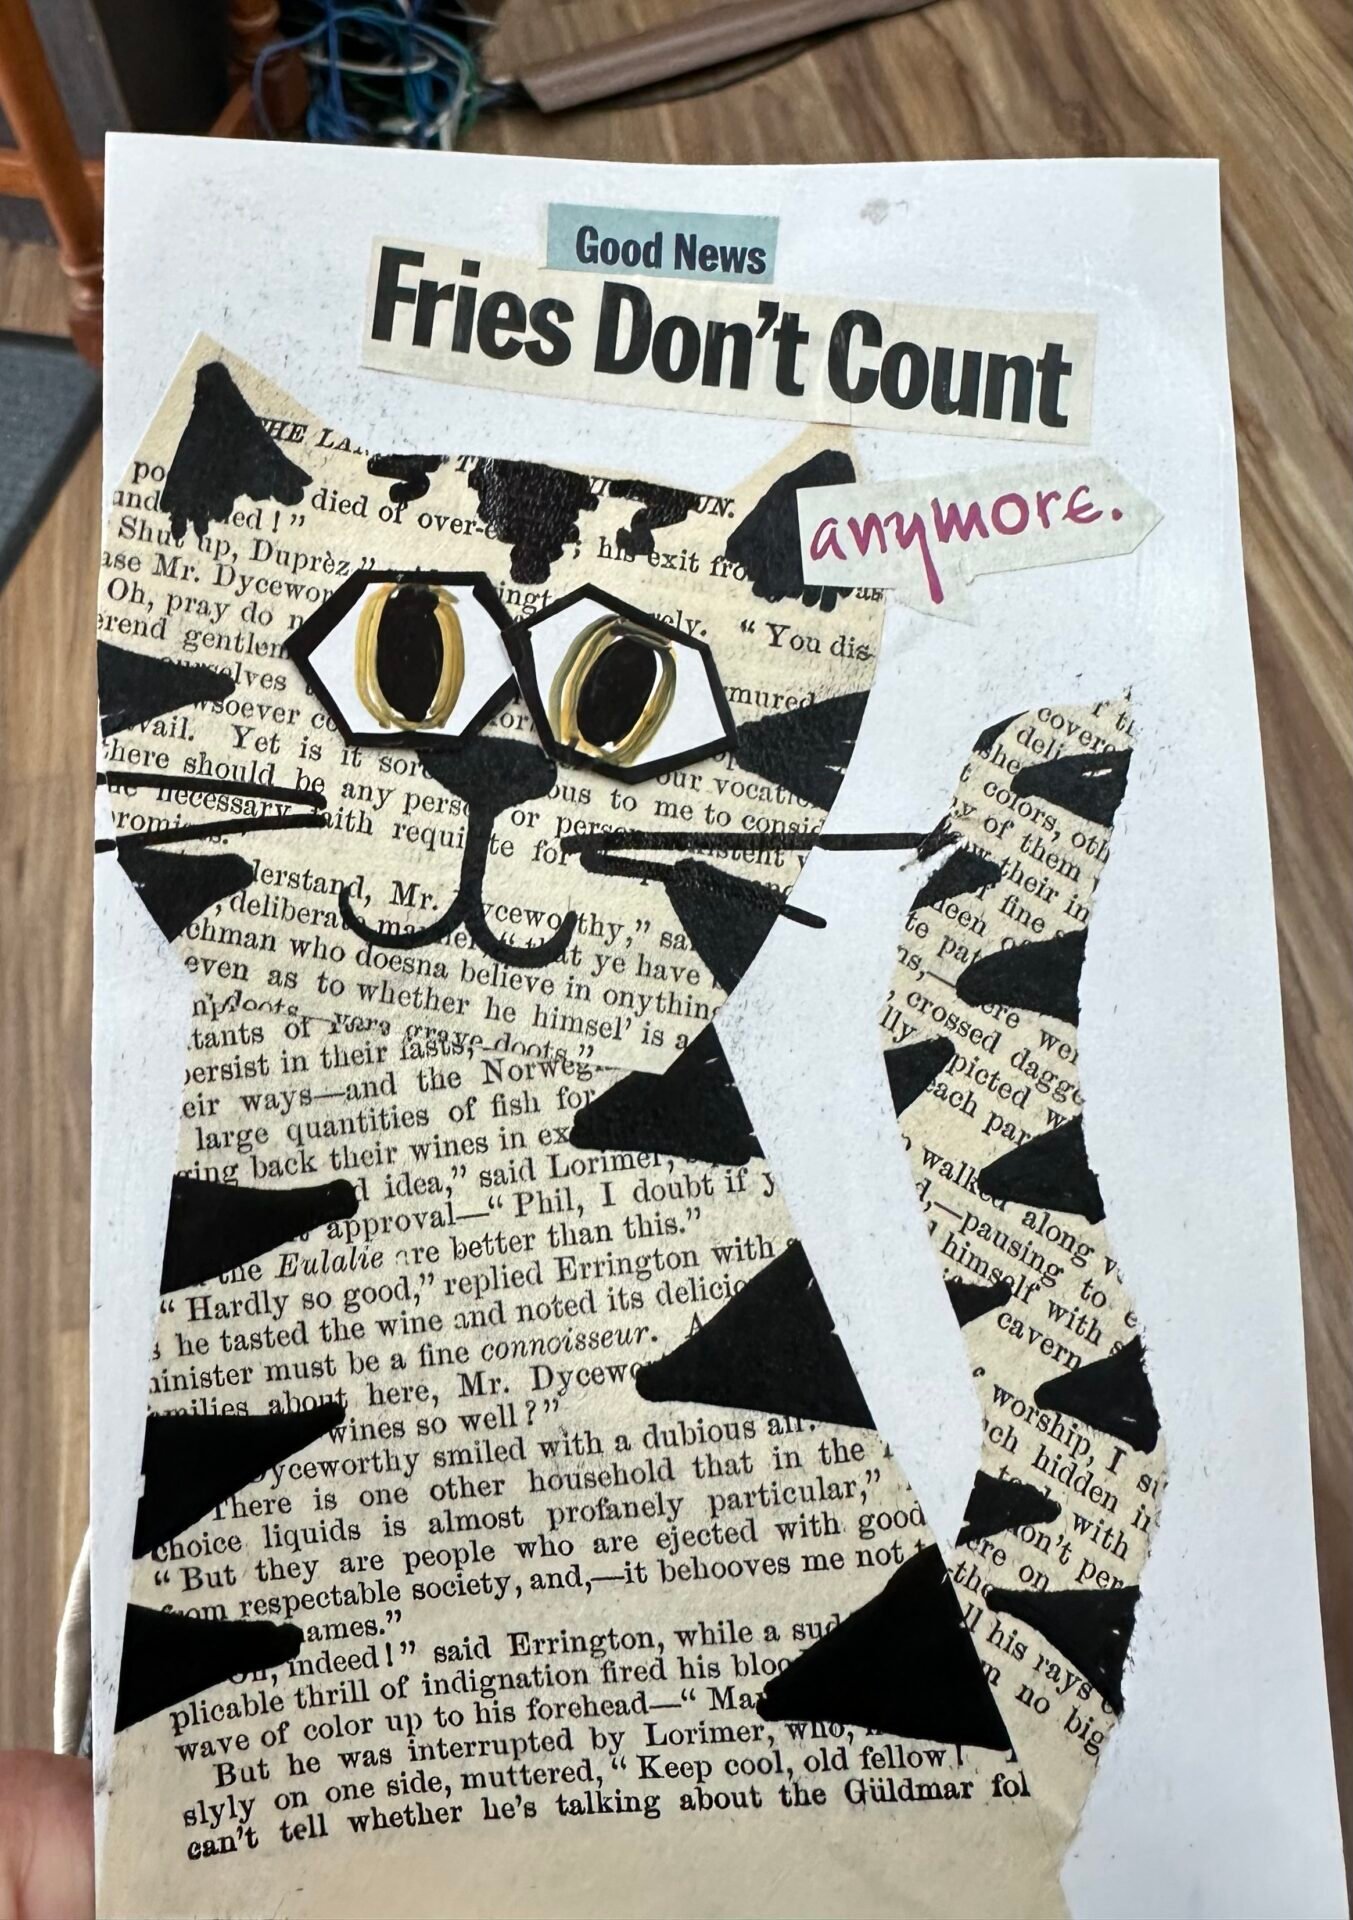 Good News
Fries Don't Count
anymore.
THE LA
UN.
died of over-
; his exit fro
ed!"
Shut up, Duprèz,"
ase Mr. Dycewor
Oh, pray do n
ely. "You dis-
erend gentlem
ourselves
mured
wsoever co
vail. Yet is it sor
our vocati
there should be any pers
ous to me to consid
necessary faith requi te for
or pers sistent
promi
derstand, Mr. yceworthy," sa
, deliberate manner, "that ye have
chman who doesna believe in onything
even as to whether he himsel' is a
tants of
persist in their fasts,
eir ways—and the Norweg
large quantities of fish for
ging back their wines in ex
d idea," said Lorimer,
approval—"Phil, I doubt if y
the Eulalie are better than this."
"Hardly so good," replied Errington with
s he tasted the wine and noted its delicio
minister must be a fine connoisseur. A
amilies about here, Mr. Dycewo
wines so well?"
Dyceworthy smiled with a dubious air.
There is one other household that in the
choice liquids is almost profanely particular,"
"But they are people who are ejected with good
from respectable society, and,—it behooves me not t
ames."
Oh, indeed!" said Errington, while a sud
plicable thrill of indignation fired his bloo
wave of color up to his forehead—"Ma
But he was interrupted by Lorimer, who,
slyly on one side, muttered, "Keep cool, old fellow!
can't tell whether he's talking about the Güldmar fol
f th
covere
she deli
t colors, oth
y of them
ow their in
f fine
deen
te pat
ns,—ere wer
, crossed dagge
lly picted w
each par
walked along
d,—pausing to e
himself with s
cavern
f worship, I su
ch hidden in
to with
don't per
ere on
the
ll his rays
m no big